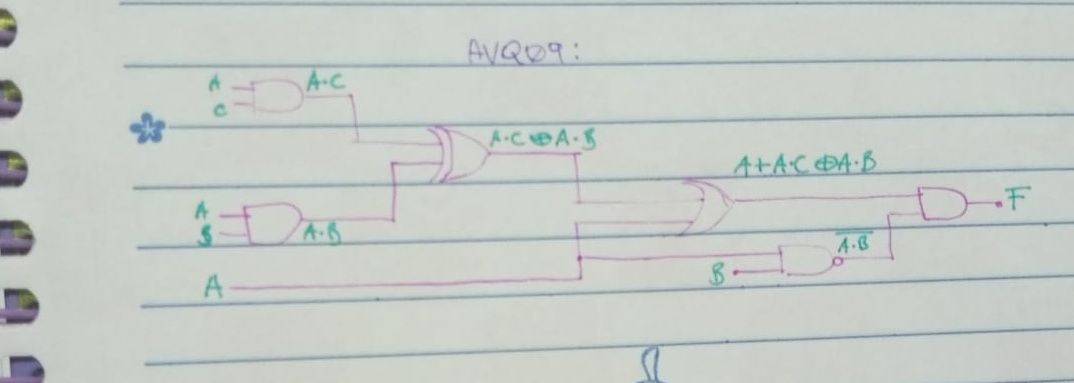 AVQ09:
A
C
A·C
A·C⊕A·B
A+A·C⊕A·B
A
B
A·B
F
A̅·̅B̅
B
A